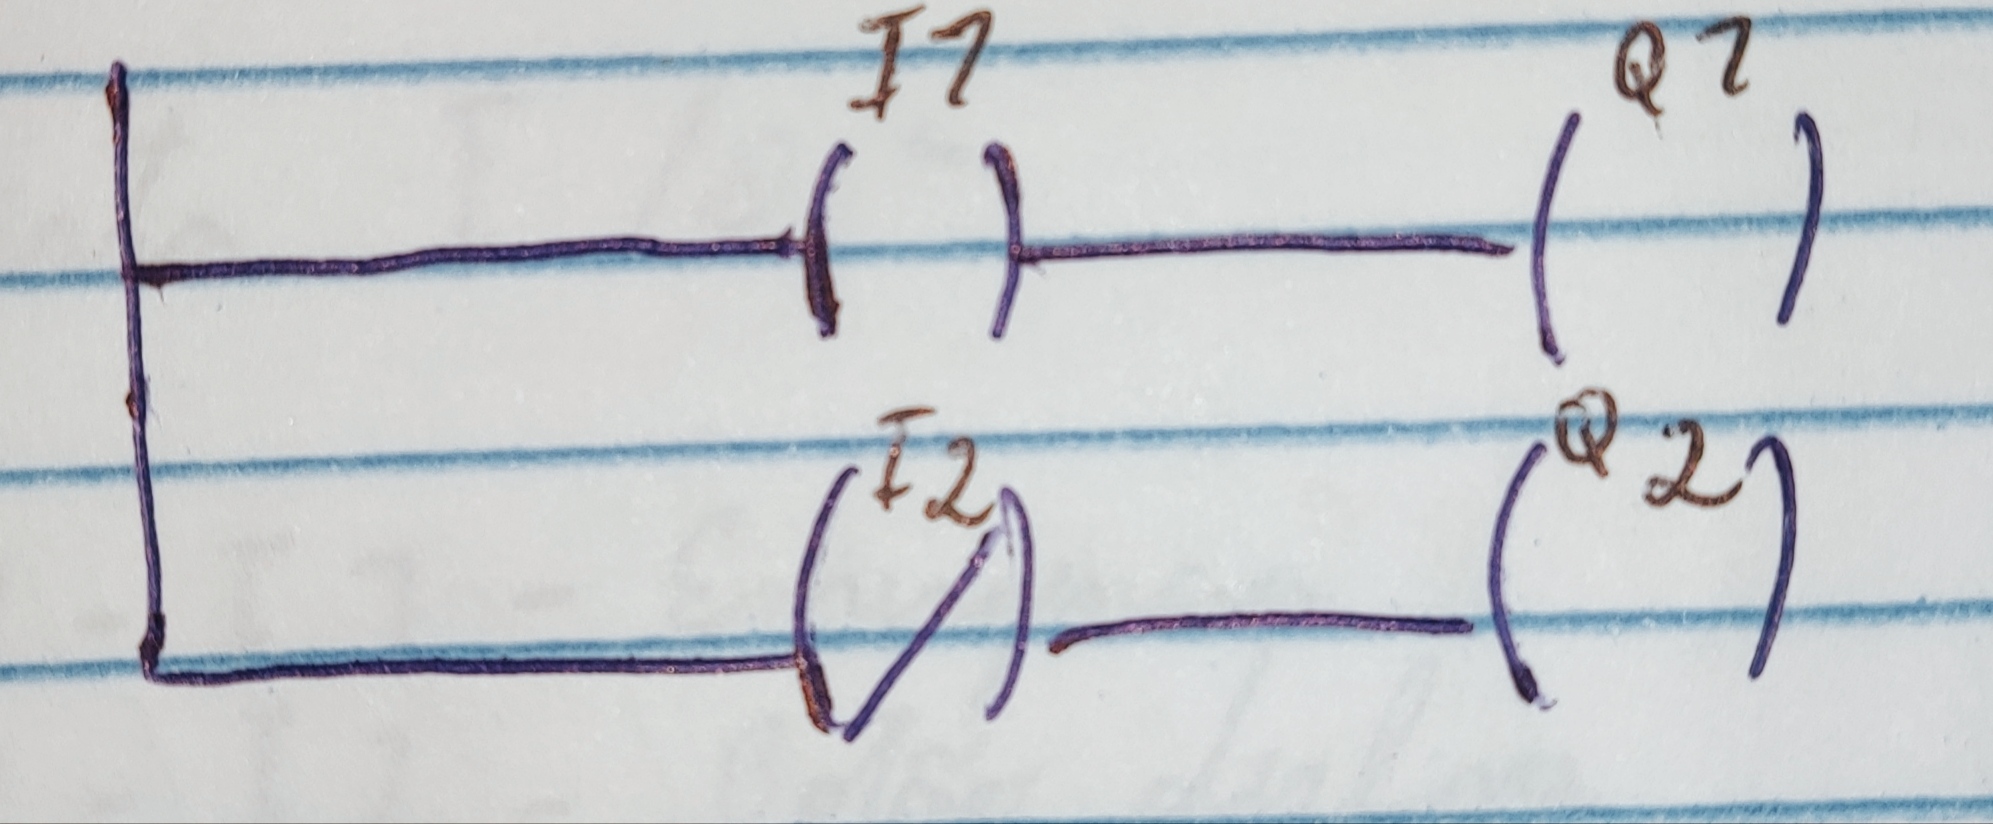 I1 Q1
I2 Q2